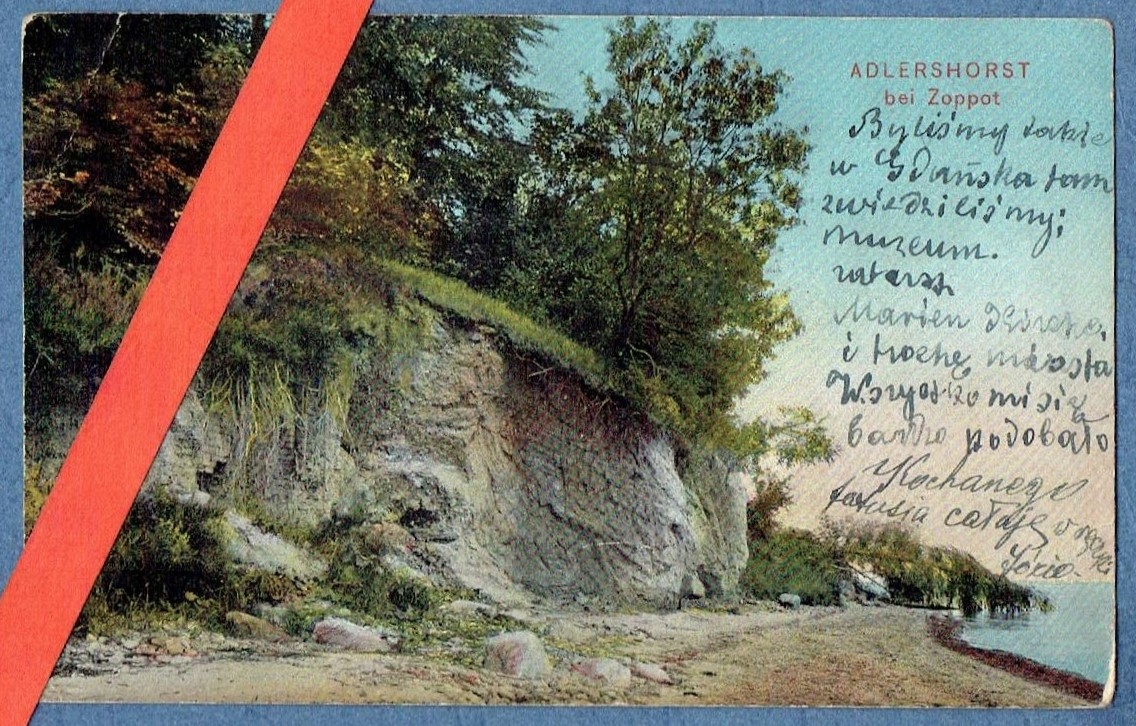 ADLERSHORST
bei Zoppot
Byliśmy także
w Gdańska tam
zwiedziliśmy;
muzeum.
Marien
i trochę miasta
Wszystko mi się
bardzo podobało
Kochanego
tatusia całuję w rączki